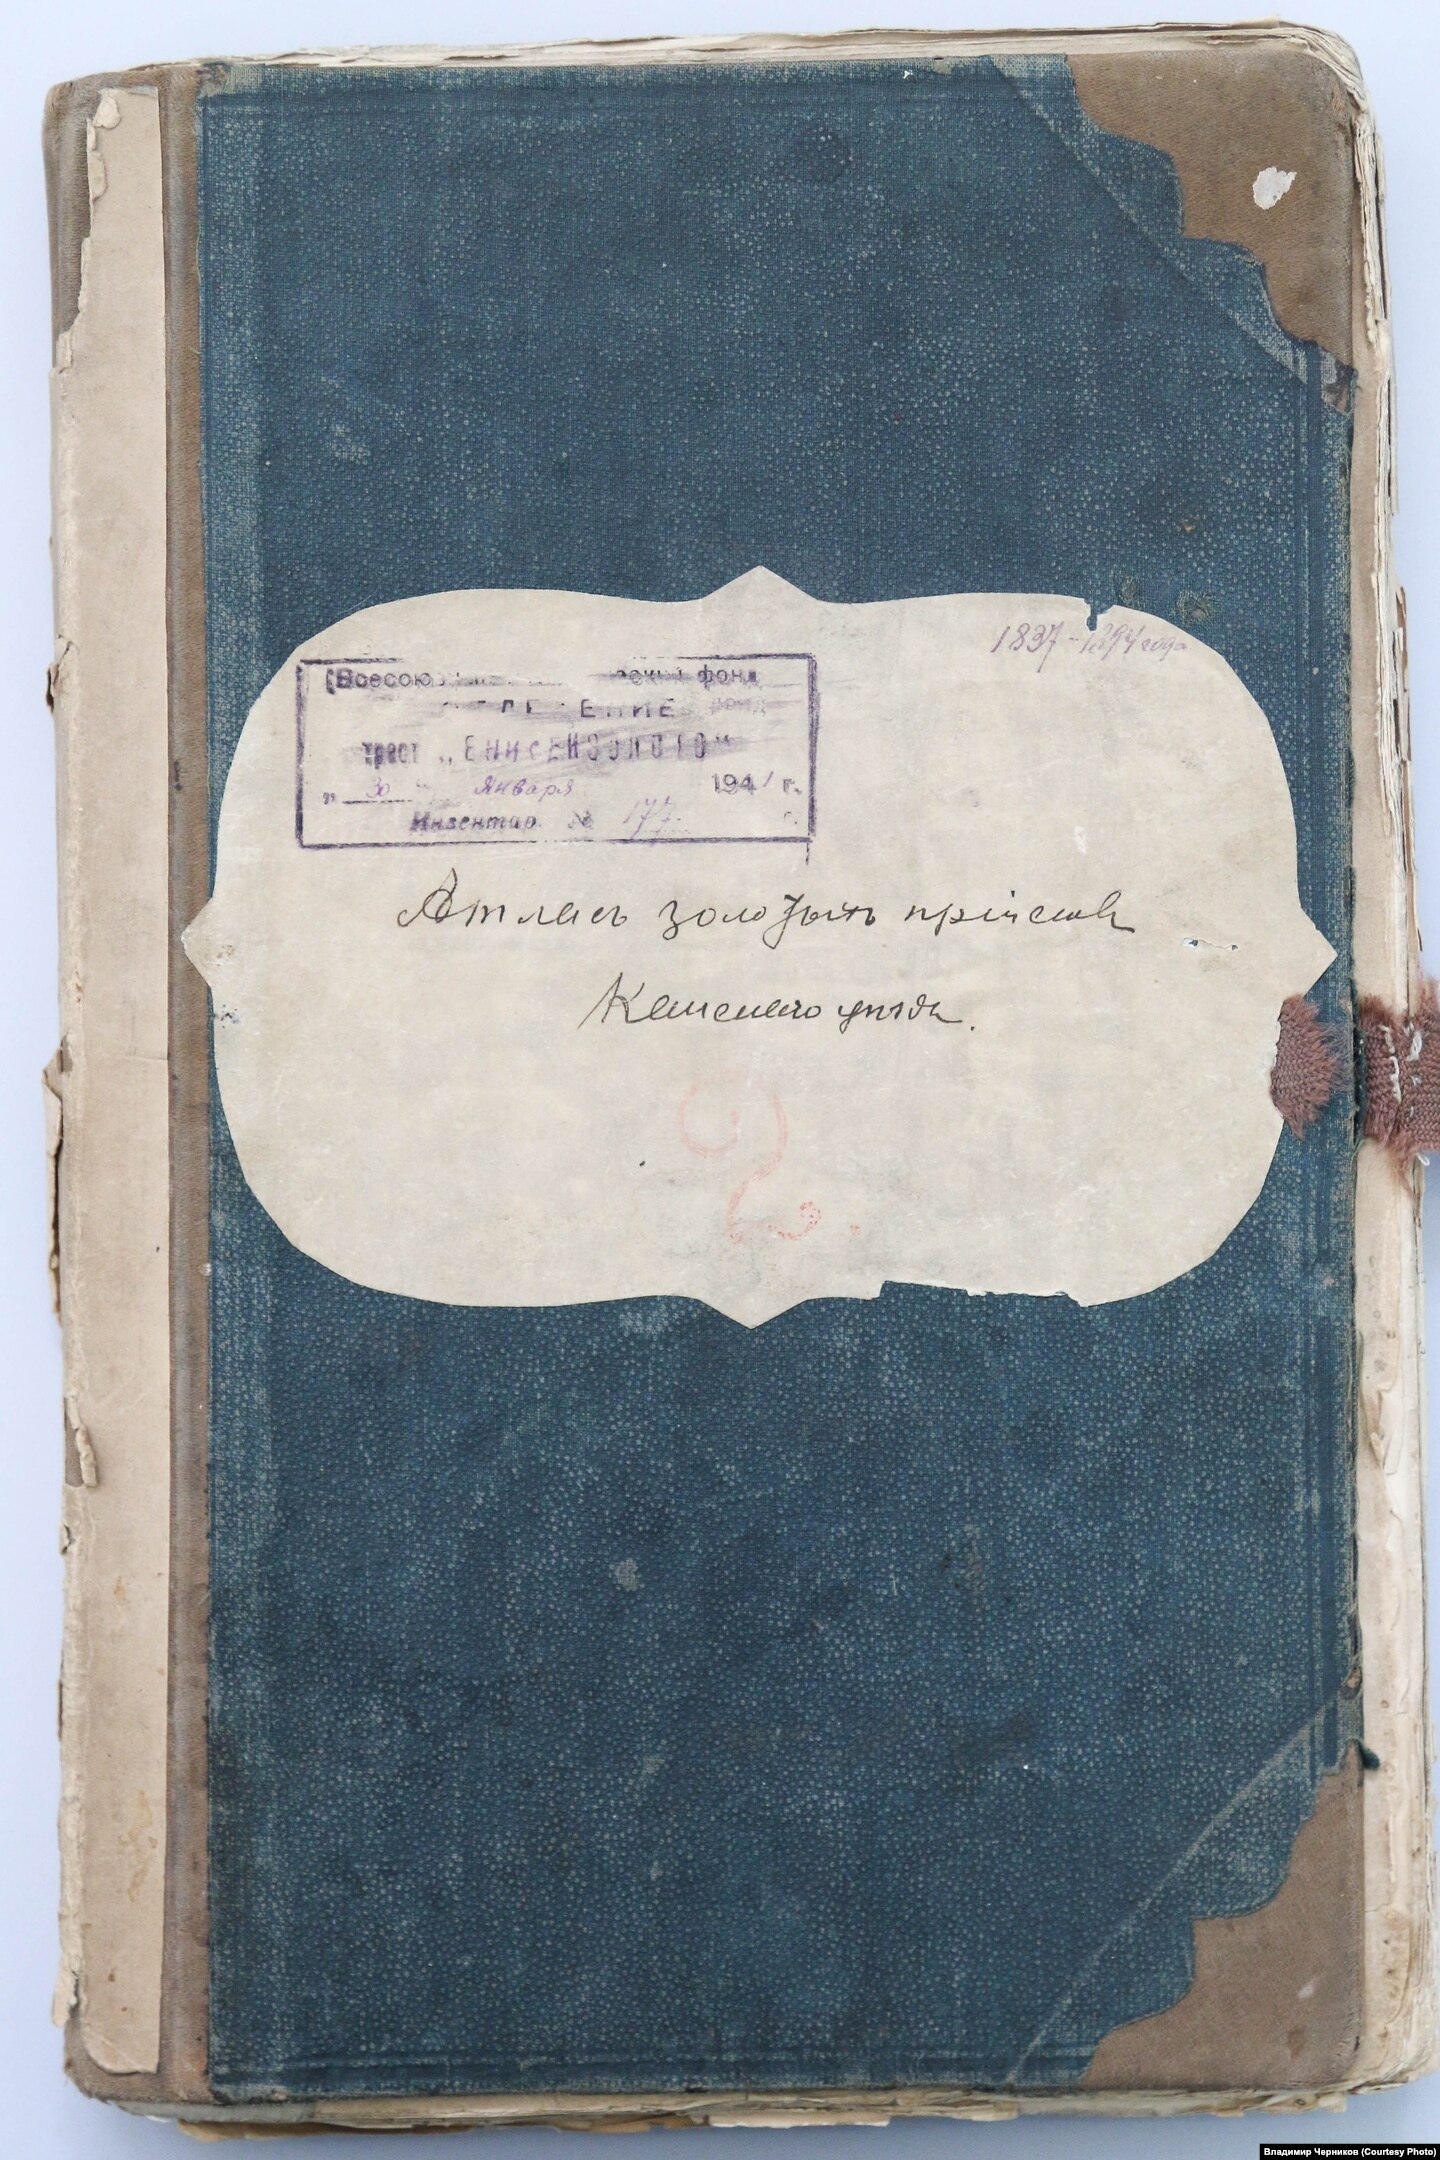 1837-1894 года
фонд
ЕНИЕ
трест „ЕНИСЕЙЗОЛОТО"
„ 30 " Января 1941 г.
Инвентар. № 177.
Атласъ золотыхъ пріисков
Канскаго уѣзда.
2.
Владимир Черников (Courtesy Photo)